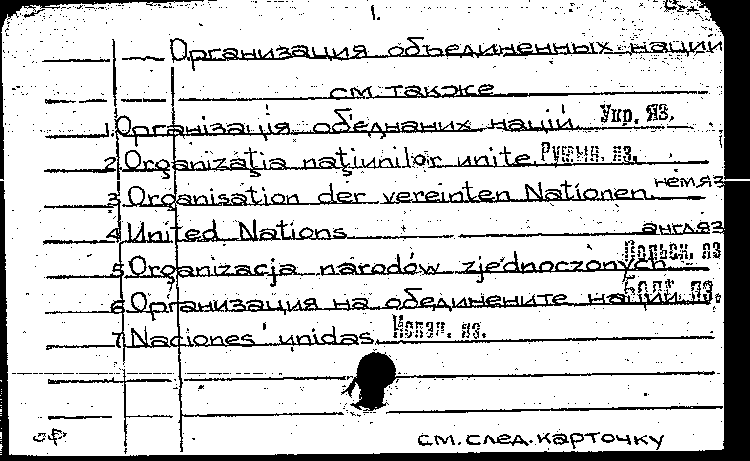 1.
Организация объединенных наций
см. также
1. Організація обеднаних націй Укр. яз.
2. Organizaţia naţiunilor unite. Румын. яз.
3. Organisation der vereinten Nationen. нем. яз
4. United Nations англ. яз
5. Organizacja narodów zjednoczonych. Польск. яз
6. Организация на обединените нации. Болг. яз.
7. Naciones unidas. Испан. яз.
см. след. карточку